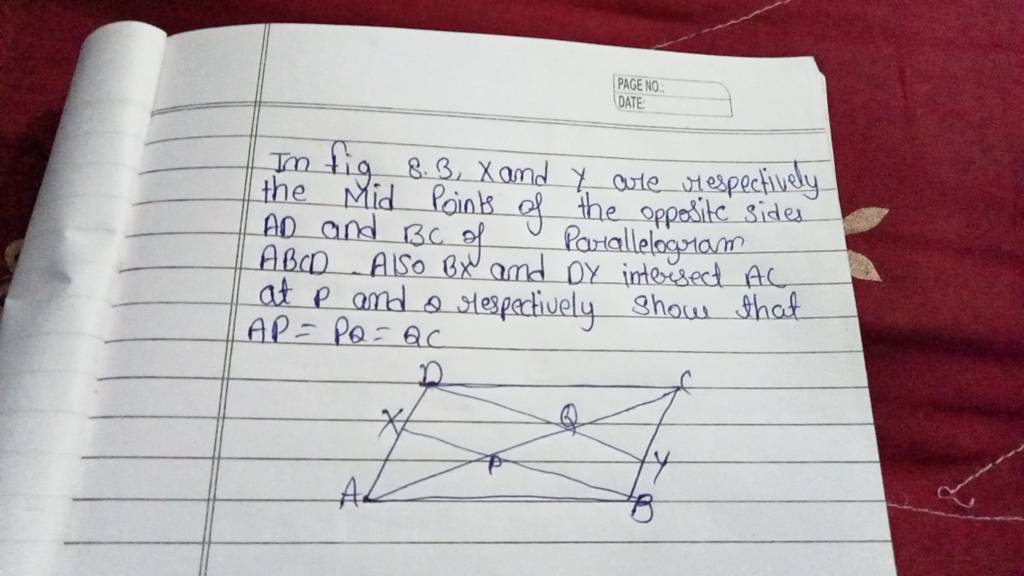 PAGE NO.:
DATE:
In fig 8.3, X and Y are respectively
the Mid Points of the opposite sides
AD and BC of Parallelogram
ABCD. Also BX and DY intersect AC
at P and Q respectively show that
AP = PQ = QC
D C
X Q
P Y
A B